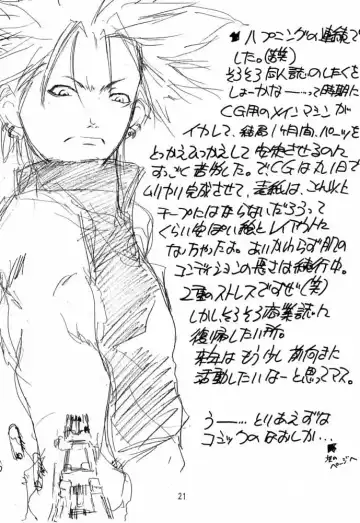 ハプニングの連続で
した。(苦笑)
そろそろ同人誌のしたくを
しようかなー…って時期に
CG用のメインマシンが
イカレて、結局1ヶ月間、パーツを
とっかえひっかえして安定させるのに
すごく苦労した。でCGは丸1日で
ムリヤリ完成させて、表紙は、これ以上
チープにはならないだろうって
くらい安っぽい絵とレイアウトに
なっちゃったよ。あいかわらず肌の
コンディションの悪さは続行中。
2重のストレスでなぜ(笑)
しかし、そろそろ商業誌に
復帰したい所。
来年はもう少し前向きに
活動したいなーと思ってマス。
うー…、とりあえずは
コミックのなおしか…
次の
ページへ
21